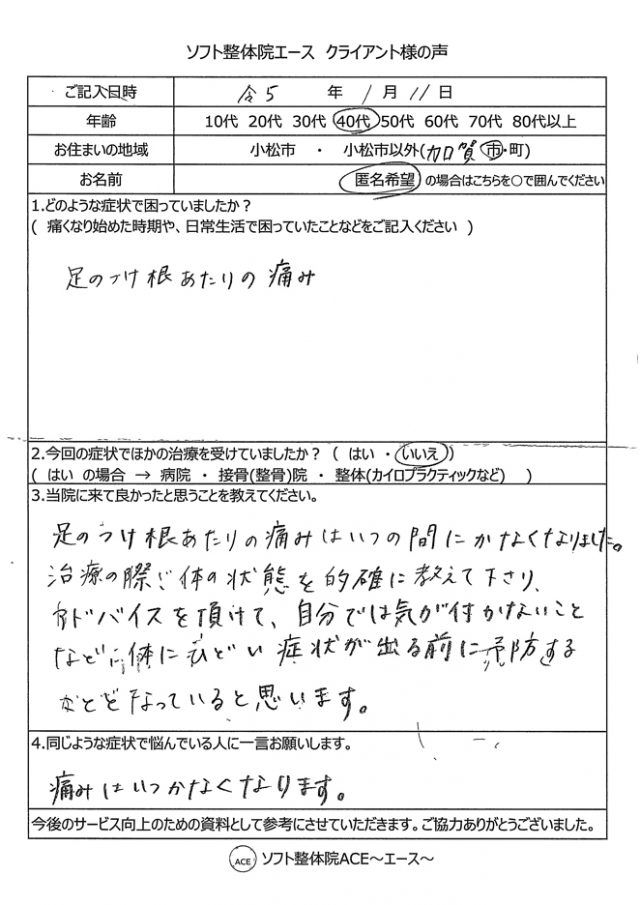 ソフト整体院エース クライアント様の声
ご記入日時 令5 年 1月 11日
年齢 10代 20代 30代 40代 50代 60代 70代 80代以上
お住まいの地域 小松市 ・ 小松市以外(加賀 市・町)
お名前 匿名希望 の場合はこちらを○で囲んでください
1.どのような症状で困っていましたか?
( 痛くなり始めた時期や、日常生活で困っていたことなどをご記入ください )
足のつけ根あたりの痛み
2.今回の症状でほかの治療を受けていましたか? ( はい ・ いいえ )
( はい の場合 → 病院 ・ 接骨(整骨)院 ・ 整体(カイロプラクティックなど) )
3.当院に来て良かったと思うことを教えてください。
足のつけ根あたりの痛みはいつの間にかなくなりました。
治療の際に体の状態を的確に教えて下さり、
アドバイスを頂けて、自分では気が付かないこと
などに体にひどい症状が出る前に予防する
なっていると思います。
4.同じような症状で悩んでいる人に一言お願いします。
痛みはいつかなくなります。
今後のサービス向上のための資料として参考にさせていただきます。ご協力ありがとうございました。
ACE ソフト整体院ACE～エース～